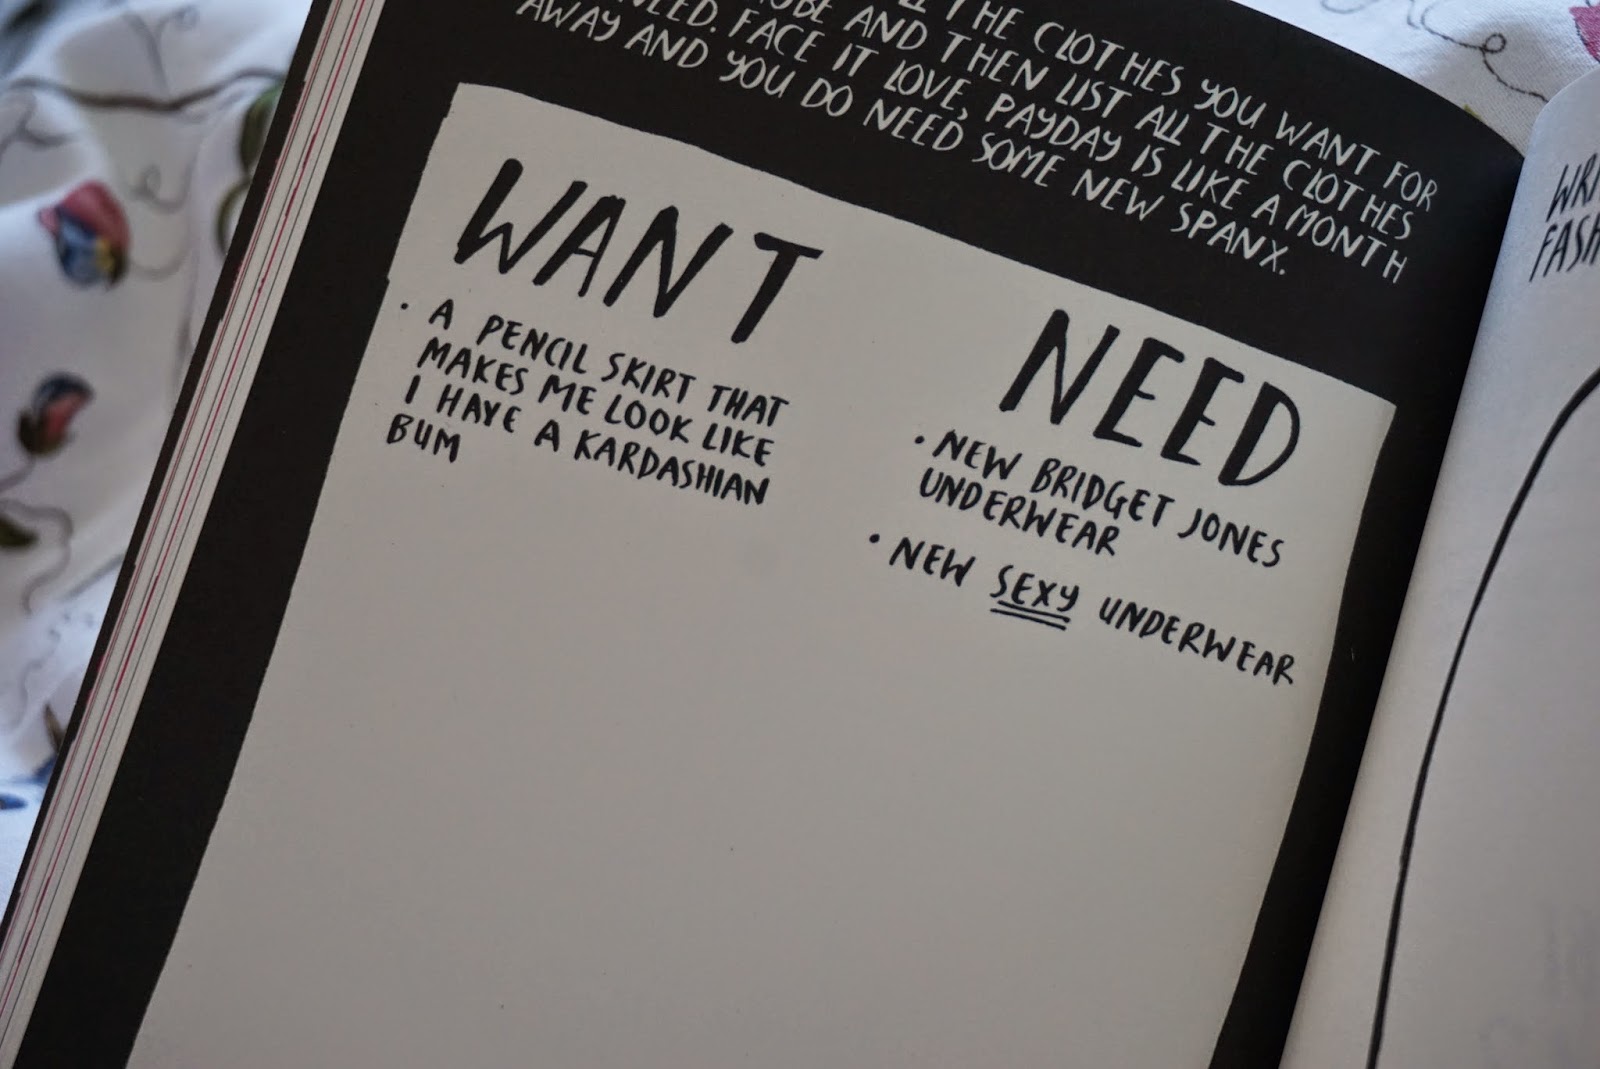 ALL THE CLOTHES YOU WANT FOR
AND THEN LIST ALL THE CLOTHES
NEED. FACE IT LOVE, PAYDAY IS LIKE A MONTH
AWAY AND YOU DO NEED SOME NEW SPANX.
WANT
• A PENCIL SKIRT THAT
MAKES ME LOOK LIKE
I HAVE A KARDASHIAN
BUM
NEED
• NEW BRIDGET JONES
UNDERWEAR
• NEW SEXY UNDERWEAR